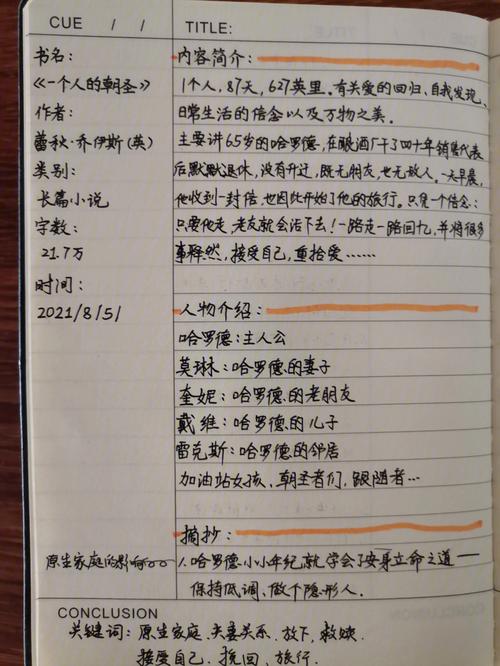 CUE / /
TITLE:
书名:
《一个人的朝圣》
作者:
蕾秋·乔伊斯(英)
类别:
长篇小说
字数:
21.7万
时间:
2021/8/5/
内容简介:
1个人,87天,627英里。有关爱的回归、自我发现、
日常生活的信念以及万物之美。
主要讲65岁的哈罗德,在酿酒厂干了四十年销售代表
后默默退休,没有升迁,既无朋友,也无敌人。一天早晨,
他收到一封信,也因此开始了他的旅行。只凭一个信念:
只要他走,老友就会活下去!一路走一路回忆,并将很多
事释然,接受自己,重拾爱……
人物介绍:
哈罗德:主人公
莫琳:哈罗德的妻子
奎妮:哈罗德的老朋友
戴维:哈罗德的儿子
雷克斯:哈罗德的邻居
加油站女孩、朝圣者们,跟随者…
摘抄:
原生家庭的影响○○○
1.哈罗德小小年纪,就学会了安身立命之道——
保持低调、做个隐形人.
CONCLUSION
关键词:原生家庭.夫妻关系.放下.救赎.
接受自己.挽回.旅行.